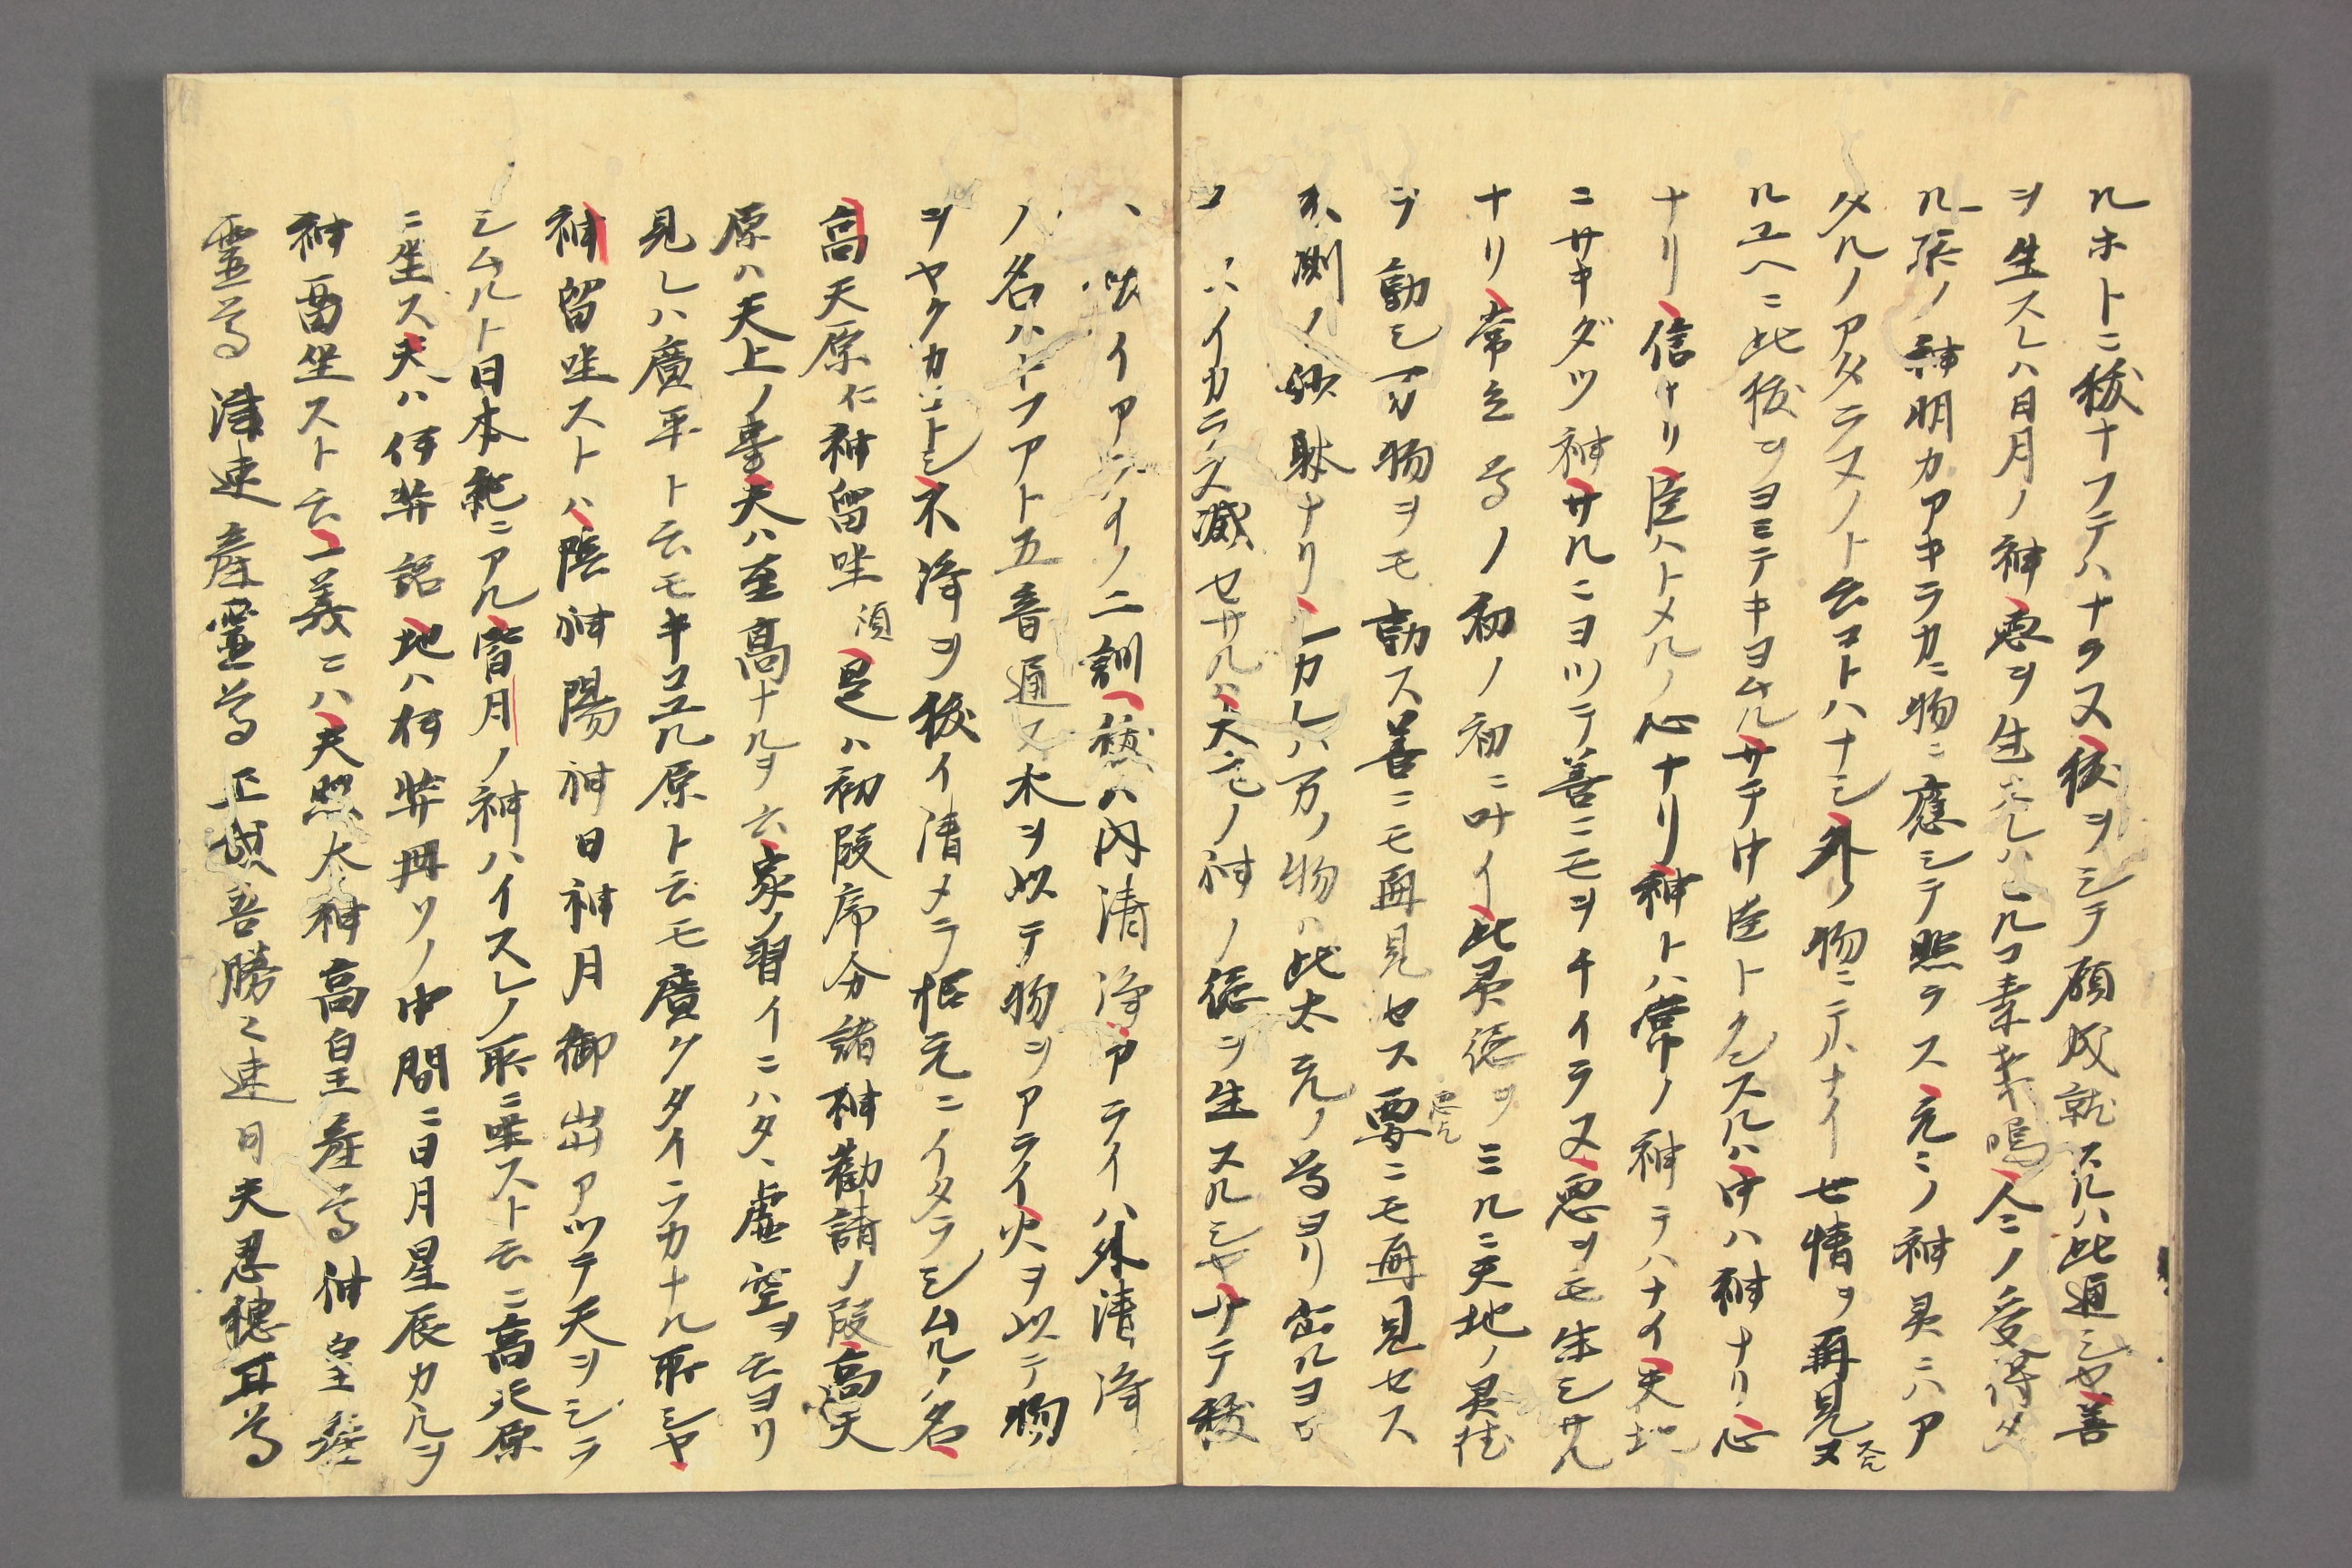 ルホトニ祓ナフテハナクヌ祓ヲシテ願成就スルハ此通シヤ善
ヲ生スレハ日月ノ神悪ヲ生スレハヒルコ素戔嗚人ニノ受得タ
ル張ノ神明カアキラカニ物ニ應シテ照ラス元ニノ神灵ニハア
タルノアタラヌノト云コトハナシ外ノ物ニテハナイ七情ヲ再見ヌ
ルユヘニ此祓ヲヨミテキヨムルサテ中臣トクンスルハ中ハ神ナリ心
ナリ信ナリ臣ハトメルノ心ナリ神トハ常ノ神テハナイ天地
ニサキダツ神サルニヨツテ善ニモヲチイラヌ悪ヲモ生シサル
ナリ常立尊ノ初ノ初ニ叶イ此灵徳ヲミルニ天地ノ灵徳
ヲ動シ万物ヲモ動ス善ニモ再見セス悪ニモ再見セス
不測ノ妙躰ナリ一カレハ万ノ物ハ此太元ノ尊ヨリ出ルヨロ
コハイカラヌ滅セサルハ天元ノ神ノ徳ヲ生スルシヤサテ祓
ハ呿イアライノ二訓祓ハ内清浄アライハ外清浄
ノ名ハナフアト五音通ス水ヲ以テ物ヲアライ火ヲ以テ物
ヲヤクカコトシ不浄ヲ祓イ清メテ根元ニイタラシムルノ名
高天原仁神留坐須是ハ初段序分諸神勧請ノ段高天
原ハ天上ノ事天ハ至高ナルヲ云家ノ習イニハタヽ虚空ヲ云ヨリ
見レハ廣平ト云モキコエル原ト云モ廣クタイラカナル所シヤ
神留坐ストハ陰神陽神日神月御出アツテ天ヲシラ
シムルト日本紀ニアル皆月ノ神ハイスレノ所ニ坐スト云ニ高天原
ニ坐ス天ハ伊弉諾地ハ伊弉冊ソノ中間ニ日月星辰カルヲ
神留坐スト云一義ニハ天照太神高皇産尊神皇産
霊尊津速産霊尊正哉吾勝々速日天忍穂耳尊